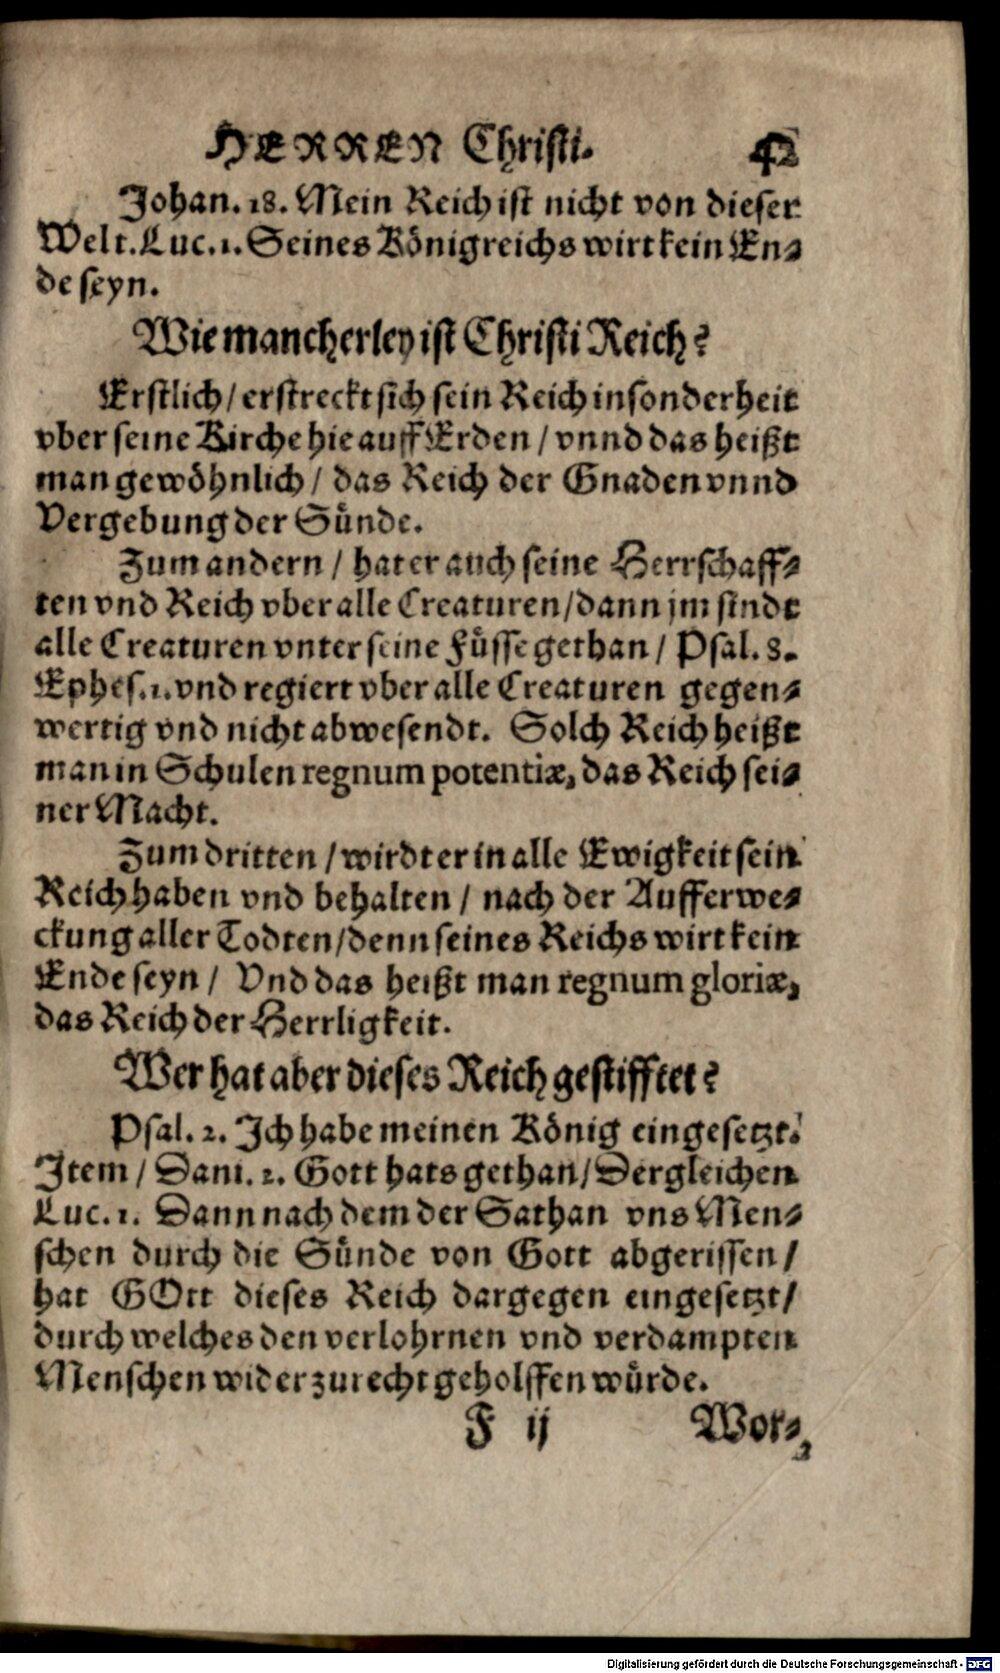 HERREN Christi. 42
Johan. 18. Mein Reich ist nicht von dieser
Welt. Luc. 1. Seines Königreichs wirt kein En⸗
de seyn.
Wie mancherley ist Christi Reich?
Erstlich / erstreckt sich sein Reich insonderheit
vber seine Kirche hie auff Erden / vnnd das heißt
man gewöhnlich / das Reich der Gnaden vnnd
Vergebung der Sünde.
Zum andern / hat er auch seine Herrschaff⸗
ten vnd Reich vber alle Creaturen / dann jm sindt
alle Creaturen vnter seine Füsse gethan / Psal. 8.
Ephes. 1. vnd regiert vber alle Creaturen gegen⸗
wertig vnd nicht abwesendt. Solch Reich heißt
man in Schulen regnum potentiæ, das Reich sei⸗
ner Macht.
Zum dritten / wirdt er in alle Ewigkeit sein
Reich haben vnd behalten / nach der Aufferwe⸗
ckung aller Todten / denn seines Reichs wirt kein
Ende seyn / Vnd das heißt man regnum gloriæ,
das Reich der Herrligkeit.
Wer hat aber dieses Reich gestifftet?
Psal. 2. Ich habe meinen König eingesetzt.
Item / Dani. 2. Gott hats gethan / Dergleichen
Luc. 1. Dann nach dem der Sathan vns Men⸗
schen durch die Sünde von Gott abgerissen /
hat GOtt dieses Reich dargegen eingesetzt /
durch welches den verlohrnen vnd verdampten
Menschen wider zu recht geholffen würde.
F ij Wor⸗
Digitalisierung gefördert durch die Deutsche Forschungsgemeinschaft - DFG